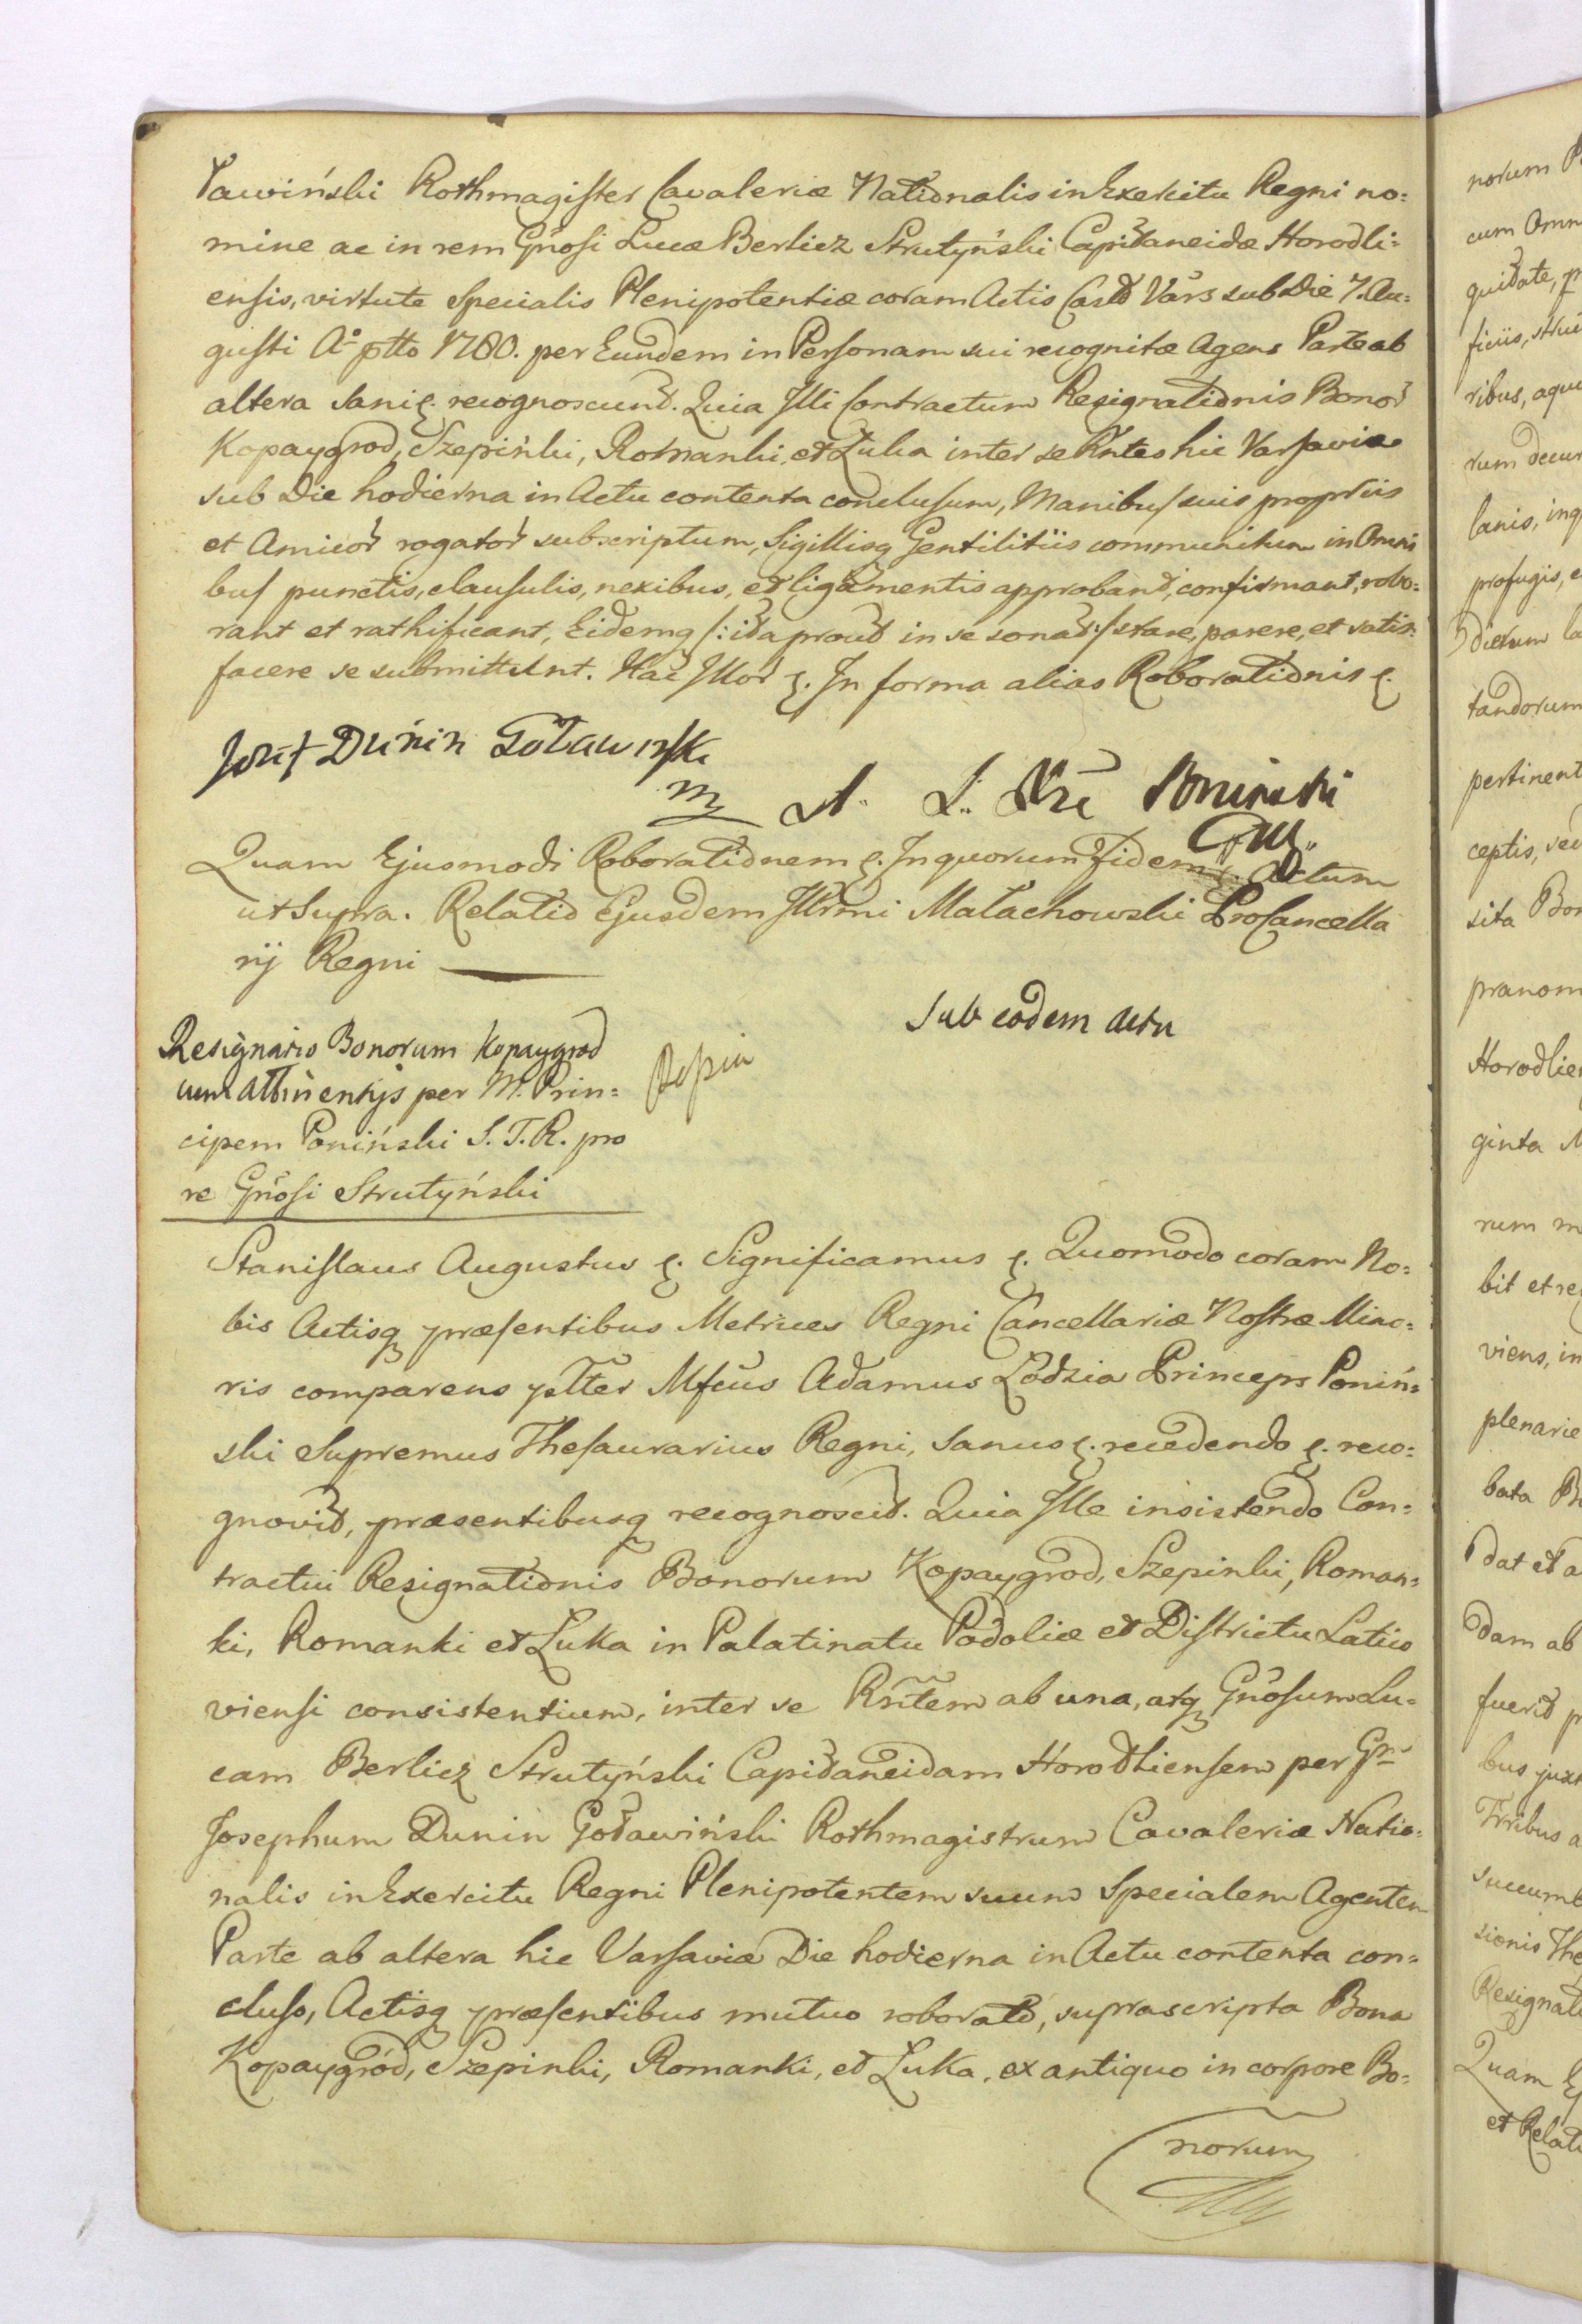 ławiński Rothmagister Cavaleriæ Nationalis in Exercitu Regni no:
mine ac in rem Gnosi Lucæ Berlicz Strutyński Capitaneidæ Horodli:
ensis, virtute Specialis Plenipotentiæ coram Actis Castr Vars sub Die 7. Au:
gusti A° ptto 1780. per Eundem in Personam sui recognitæ Agens Parte ab
altera Sani ę. recognoscunt. Quia Illi Contractum Resignationis Bonor
Kopaygrod, Szepinki, Romanki, et Łuka inter se Rntes hic Varsaviæ
sub Die hodierna in Actu contenta conclusum, Manibus suis proprüs
et Amicor rogator subscriptum, Sigillisq Gentilitiis communitum in Omni
bus punctis, clausulis, nexibus, et ligamentis approbant, confirmant, robo:
rant et rathificant, Eidemq /: ita prout in se sonat :/ stare, parere, et satis:
facere se submittunt. Hac Illor ę. In forma alias Roborationis ę.
Jozef Dunin Goławinski
mp A. Ł. Xże Poninski
Quam Ejusmodi Roborationem ę. In quorum Fidem ę. Actum
ut Supra. Relatio Ejusdem Illrmi Małachowski ProCancella
rij Regni
Sub eodem Actu
Resignatio Bonorum Kopaygrod
cum Attinentijs per M. Prin:
cipem Poniński S. T. R. pro
re Gnosi Strutyński
Stanislaus Augustus ę. Significamus ę. Quomodo coram No:
bis Actisq præsentibus Metrices Regni Cancellariæ Nostræ Mino:
ris comparens pltter Mfcus Adamus Łodzia Princeps Poniń:
ski Supremus Thesaurarius Regni, Sanus ę. recedendo ę. reco:
gnovit, præsentibusq recognoscit. Quia Ille insistendo Con:
tractui Resignationis Bonorum Kopaygrod, Szepinki, Roman:
ki, Romanki et Łuka in Palatinatu Podoliæ et Districtu Latico
viensi consistentium, inter se Rntem ab una, atq Gnosum Lu:
cam Berlicz Strutyński Capitaneidam Horodliensem per G
Josephum Dunin Goławiński Rothmagistrum Cavaleriæ Natio:
nalis in Exercitu Regni Plenipotentem suum Specialem Agentem
Parte ab altera hic Varsaviæ Die hodierna in Actu contenta con:
cluso, Actisq præsentibus mutuo roborato, suprascripta Bona
Kopaygród, Szepinki, Romanki, et Łuka, ex antiquo in corpore Bo:
norum